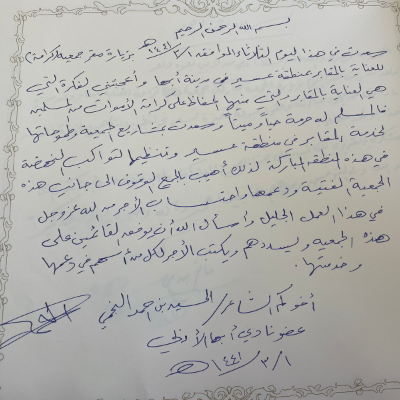 بسم الله الرحمن الرحيم
سعدت في هذا اليوم الثلاثاء الموافق ١/٣/١٤٤١هـ بزيارة مقر جمعية (كرامة)
للعناية بالمقابر بمنطقة عسير في مدينة أبها وأعجبتني الفكرة التي
هي العناية بالمقابر والتي منها الحفاظ على كرامة الأموات من المسلمين
فالمسلم له حرمة حياً وميتاً وسعدت بمشاريع الجمعية وطموحاتها
لخدمة المقابر في منطقة عسير وتنظيمها لتواكب النهضة
في هذه المنطقة المباركة لذلك أهيب بالجميع الوقوف إلى جانب هذه
الجمعية الفتية ودعمها واحتساب الأجر من الله عز وجل
في هذا العمل الجليل وأسأل الله أن يوفق القائمين على
هذه الجمعية ويسددهم ويكتب الأجر لكل من أسهم في دعمها
وخدمتها.
أخوكم الشاعر/ الحسين بن أحمد النجمي
عضو نادي أبها الأدبي
١/٣/١٤٤١هـ